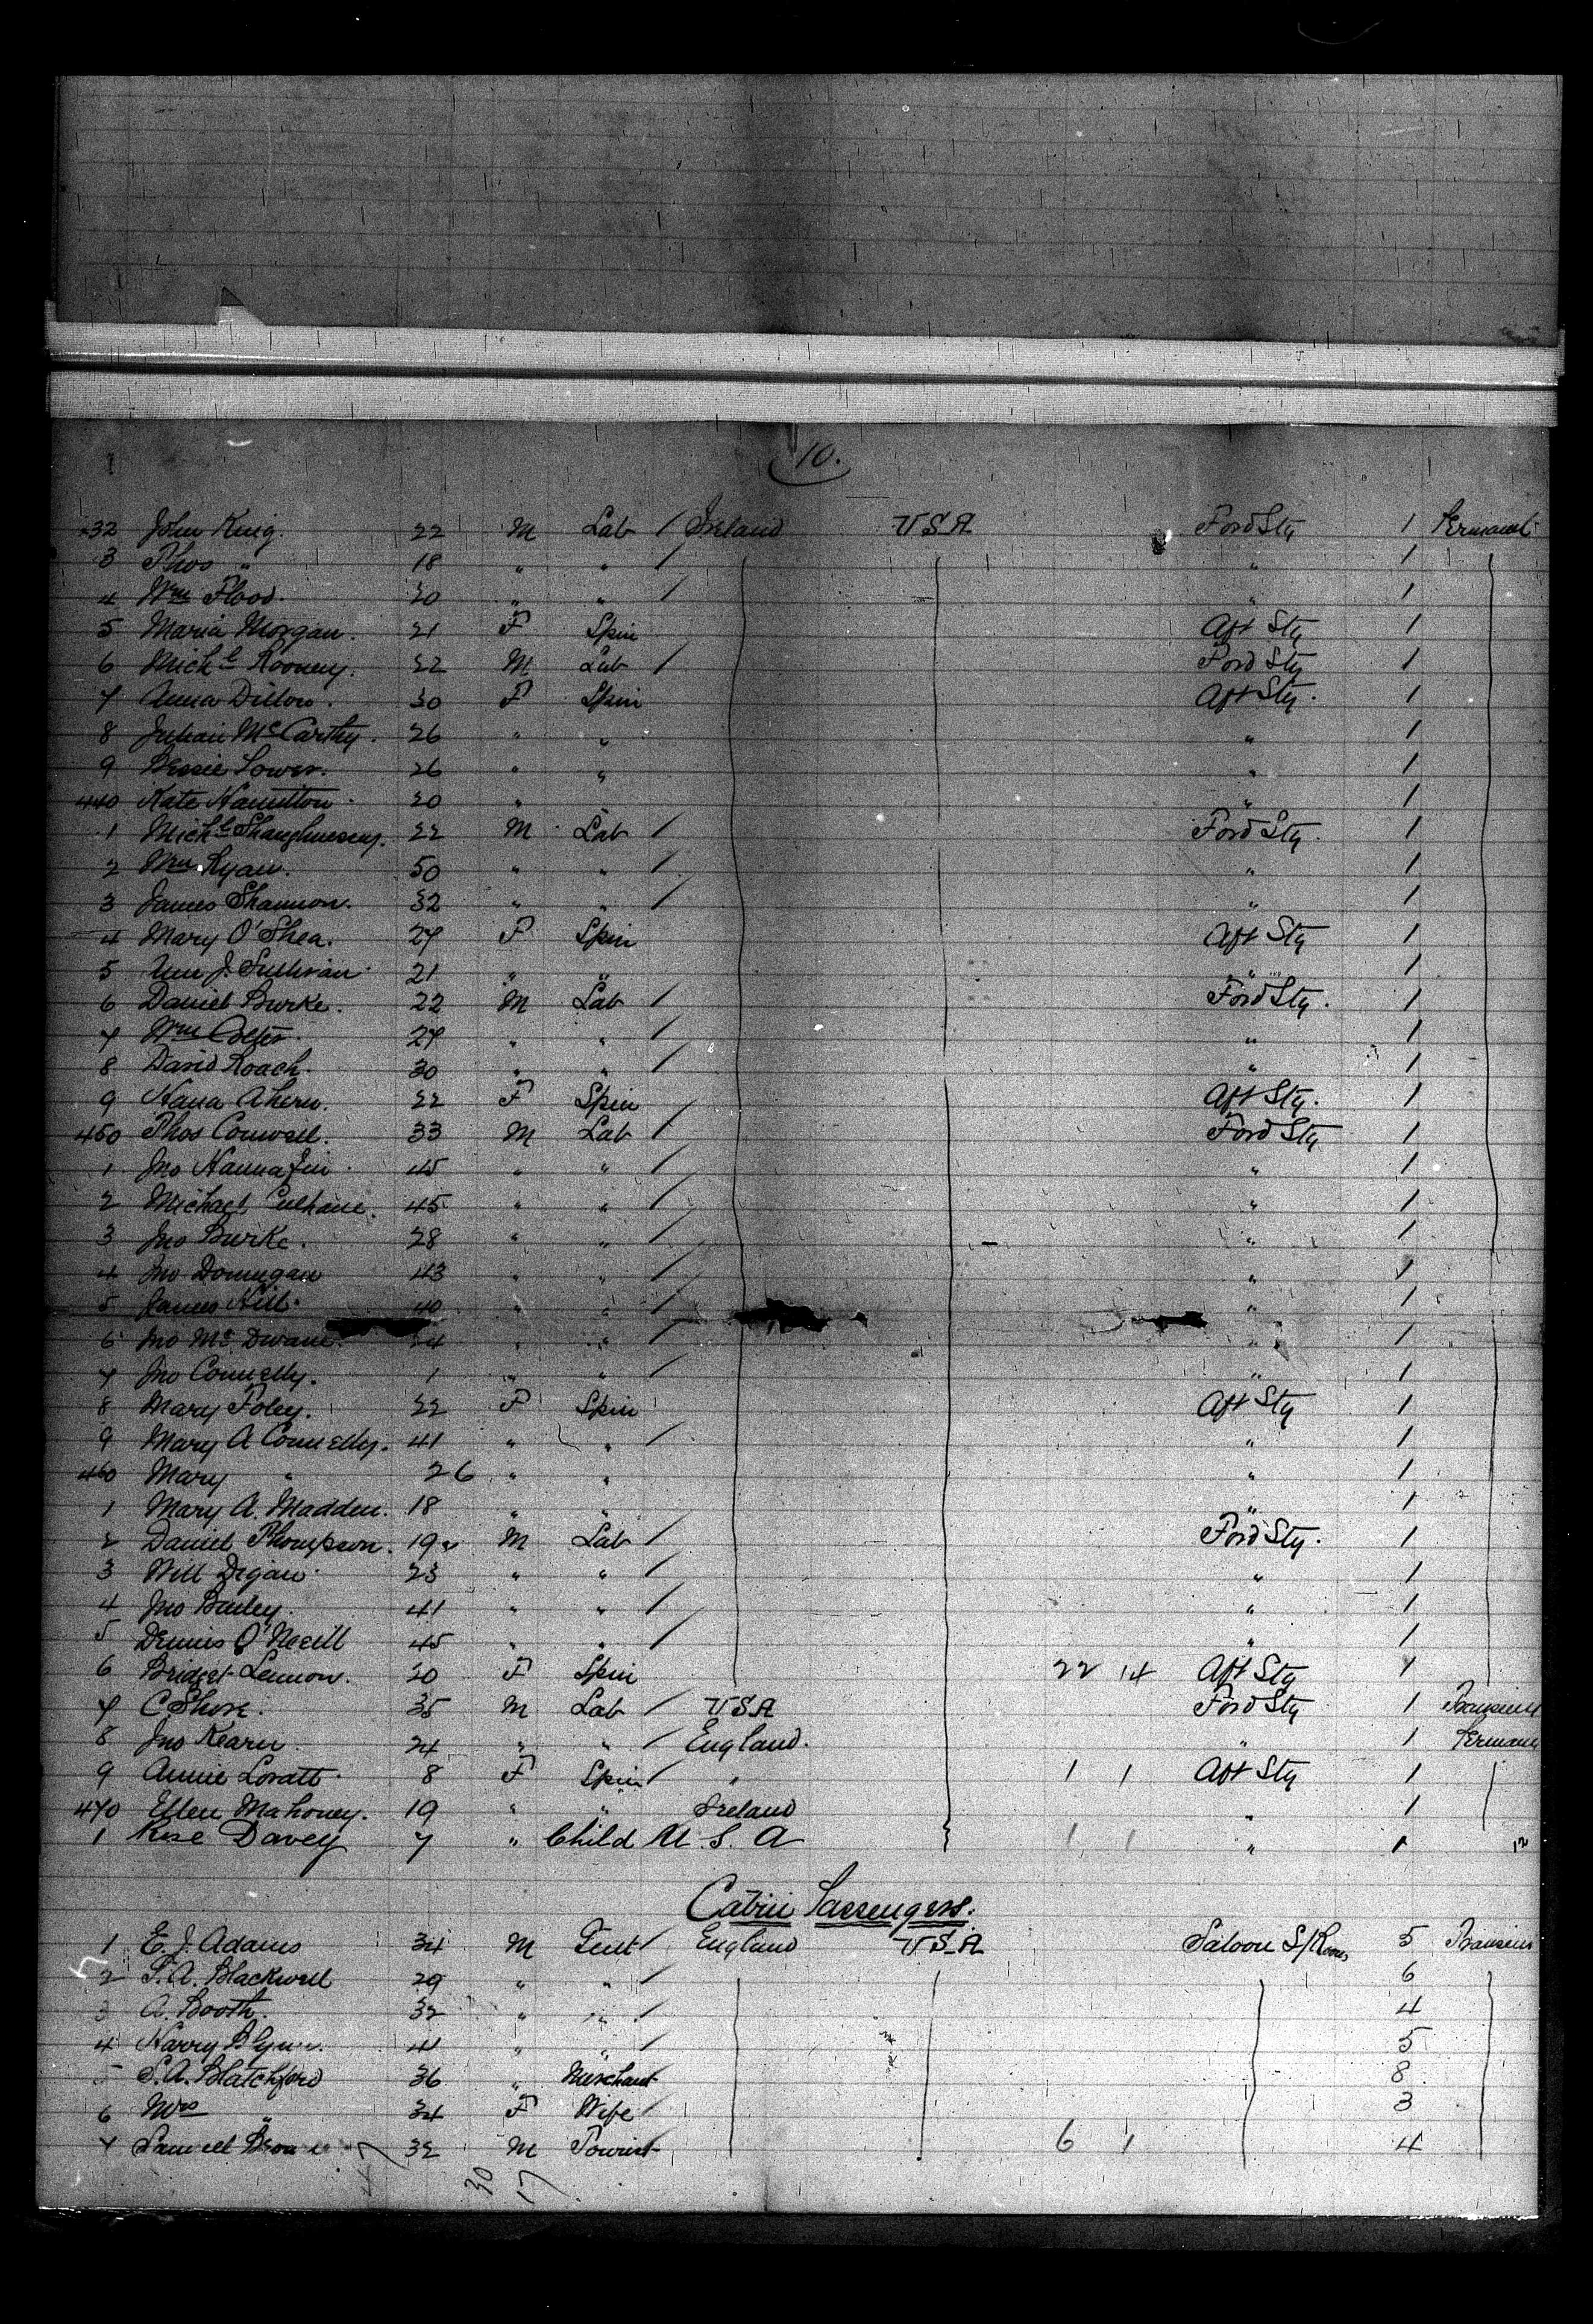 10.
432 John King. 22 M Lab / Ireland USA Ford Stg 1 Permanent
3 Thos " 18 " " / " 1
4 Wm Flood. 20 " " / " 1
5 Maria Morgan. 21 F Spin Aft Stg 1
6 Michl Rooney. 22 M Lab / Ford Stg 1
7 Anna Dillon. 30 F Spin Aft Stg. 1
8 McCarthy. 26 " " " 1
9 Bessie 26 " " " 1
440 Kate Hamilton. 20 " " 1
1 Michl Shaughnessy. 22 M Lab / Ford Stg. 1
2 Wm Ryan. 50 " " / " 1
3 James Shannon. 32 " " / " 1
4 Mary O'Shea. 27 F Spin Aft Stg 1
5 Ann J. Sullivan 21 " " " 1
6 Daniel Burke. 22 M Lab / Ford Stg. 1
7 Wm 27 " " / " 1
8 David Roach. 30 " " / " 1
9 Hana Ahern. 22 F Spin Aft Stg. 1
450 Thos Conwell. 33 M Lab / Ford Stg 1
1 Jno Hannafin 45 " " / " 1
2 Michael Culhane. 45 " " / " 1
3 Jno Burke. 28 " " / " 1
4 Jno Donnegan 43 " " / " 1
5 James Hill. 40 " " / " 1
6 Jno McDwane. " " / " 1
7 Jno Connelly. 1 " " / " 1
8 Mary Foley. 22 F Spin Aft Stg 1
9 Mary A Connelly. 41 " " / " 1
460 Mary " 26 " " " 1
1 Mary A. Madden. 18 " " " 1
2 Daniel Thompson. 19 M Lab / Ford Stg. 1
3 Will Degan. 23 " " / " 1
4 Jno 41 " " / " 1
5 Dennis O'Neill 45 " " / " 1
6 Bridget Lennon. 20 F Spin 22 14 Aft Stg 1
7 C. Shore. 35 M Lab / USA Ford Stg 1
8 Jno Kearn 24 " " / England. " 1
9 Annie Lovatt 8 F Spin / " 1 1 Aft Stg 1
470 Ellen Mahoney. 19 " " Ireland " 1
1 Rose Davey 7 " Child U. S. A 1 1 " 1 12
Cabin Passengers.
1 E. J. Adams 34 M Gent / England USA Saloon S/Rooms 5
2 Blackwell 29 " " / 6
3 A. Booth. 32 " " / 4
4 Harry 41 " " / 5
5 S. A. Blatchford 36 " Merchant 8
6 Mrs " 34 F Wife / 3
7 Samuel 32 M Tourist 6 1 4
47 30 17